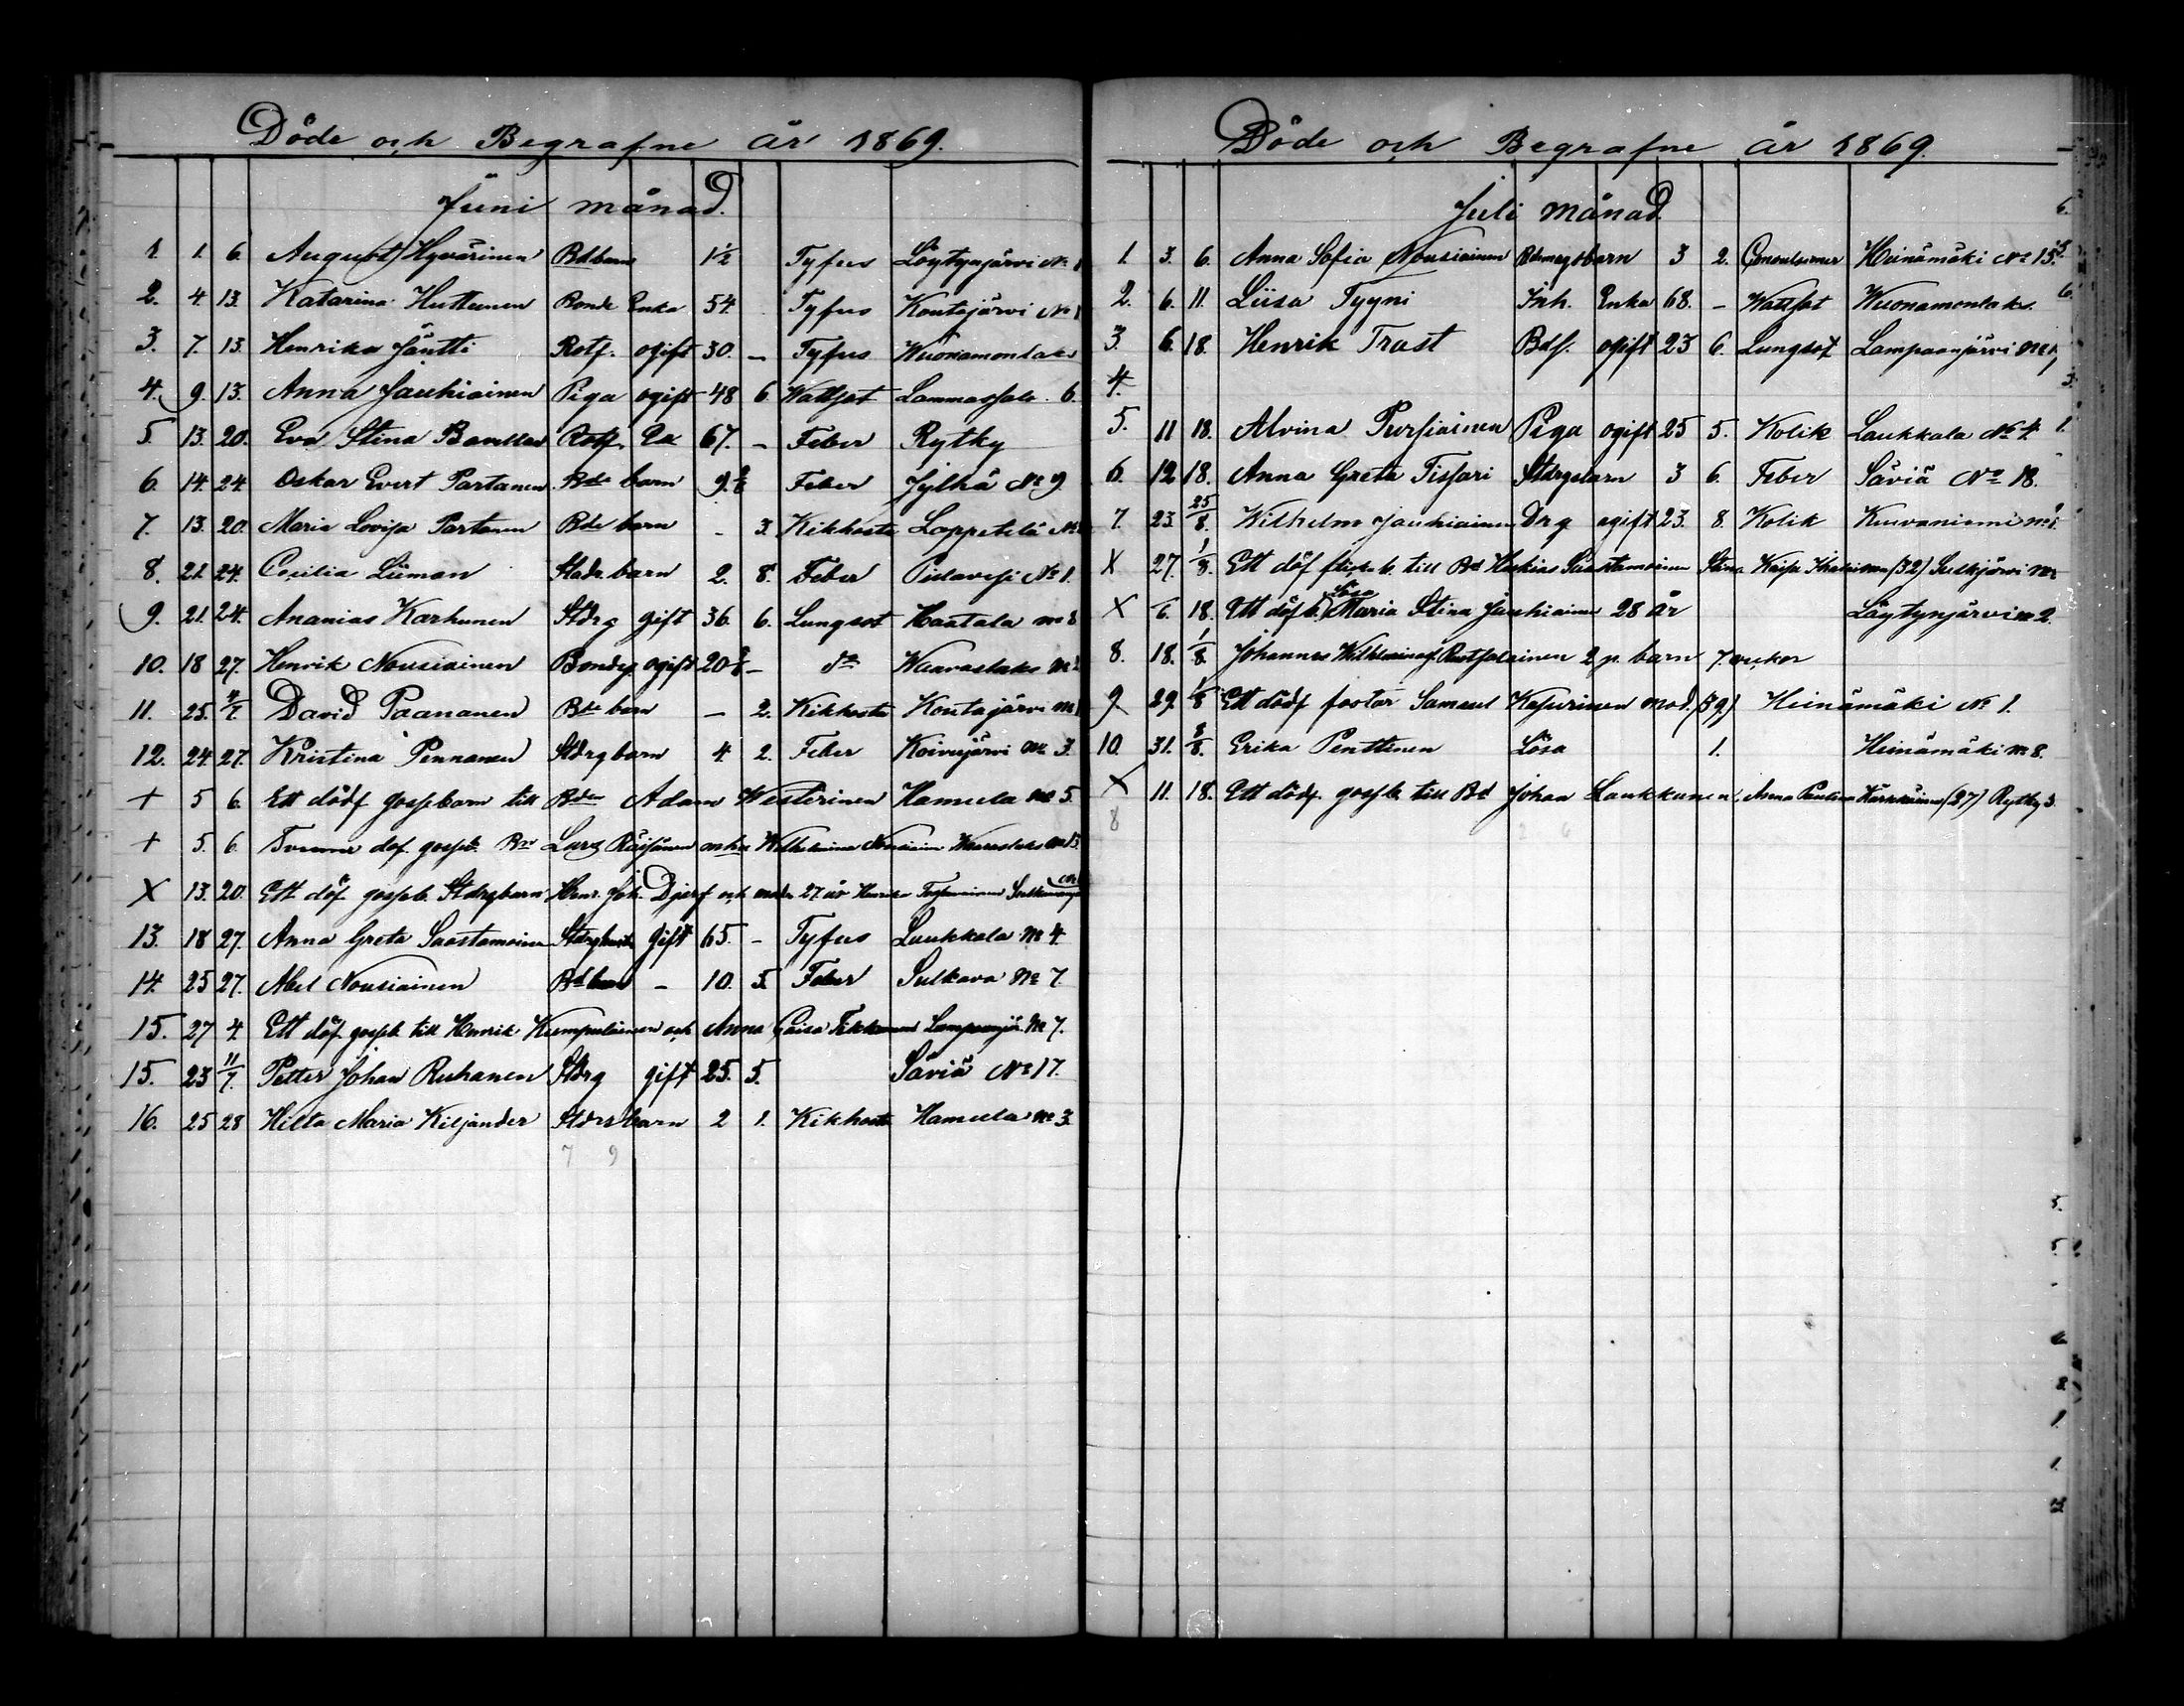 Döde och Begrafne år 1869.
Juni månad.
1 1. 6. August Hyvärinen Bdbarn 1½ Tyfus Löytynjärvi No 1
2. 4. 13. Katarina Huttunen Bonde Enka 54. Tyfus Koutajärvi No 1
3. 7. 13. Henrika Jäntti Rotf. ogift 30. – Tyfus Wuonamonlaks
4. 9. 13. Anna Jauhiainen Piga ogift 48 6 Wattsot Lammassalo 6.
5. 13. 20. Eva Stina Rotf. Ea 67. – Feber Rytky
6. 14. 24. Oskar Evert Partanen Bde barn 9. Feber Jylhä No 9
7. 13. 20. Maria Lovisa Partanen Bde barn - 3. Kikhosta Lappetelä No
8. 21. 24. Cecilia Liiman Stadr. barn 2. 8. Feber Pielavesi No 1.
9. 21. 24. Ananias Karhunen Stdrg gift 36. 6. Lungsot Haatala No 8
10. 18 27. Henrik Nousiainen Bondes. ogift 20 – do Waaraslaks No 2
11. 25. 4/7 David Paananen Bde barn – 2. Kikhosta Koutajärvi No 1
12. 24. 27. Kristina Pennanen Stdrg barn 4 2. Feber Koivujärvi No 3.
+ 5 6. Ett dödf gossebarn till Bden Adam Westerinen Hamula No 5.
+ 5. 6. döf. gosseb. Bdn Lars Räisänen Wilhelmina Nousiainen Waaraslaks No 13.
X 13. 20. Ett döf. gosseb. Stdrgbarn Henr. Joh. Djerf och moder 27 år Henrika
13. 18 27. Anna Greta Saastamoinen gift 65. – Tyfus Laukkala No 4.
14. 25 27. Abel Nousiainen Bdbarn – 10. 5. Feber Sulkava No 7.
15. 27 4. Ett döf. gosseb. till Henrik Kumpulainen och Anna Caisa Tikkanen Lampaanjär. No 7.
15. 23 11/7. Petter Johan Ruhanen Stdrg gift 25. 5. Säviä No 17.
16. 25 28 Hilta Maria Kiljander Stdrs barn 2 1. Kikhosta Hamula No 3.
7 9
Döde och Begrafne år 1869.
Juli månad.
1. 3. 6. Anna Sofia Nousiainen 3 2. Heinämäki No 15.
2. 6. 11. Liisa Tyyni Inh. Enka 68. – Wattsot Wuonamonlaks.
3. 6. 18. Henrik Trast Bds. ogift 23 6. Lungsot Lampaanjärvi No
4.
5. 11 18. Alvina Pursiainen Piga ogift 25 5. Kolik Laukkala No 4.
6. 12. 18. Anna Greta Tissari Stdrgebarn 3 6. Feber Säviä No 18.
7. 23. 25/8. Wilhelm Jauhiainen Drg ogift 23. 8. Kolik Kuivaniemi No
X 27. 1/8. Ett döf flicke b. till Bd Saastamoinen Stina Kaisa (32) Sulkjärvi No
X 6. 18. Ett döf b. Lösa Maria Stina Jauhiainen 28 år Löytynjärvi No 2.
8. 18. 1/8. Johannes 2 p. barn 7. veckor
9 29. 1/8 Ett dödf foster Samuel Kasurinen mod. (39) Heinämäki No 1.
10. 31. 8/8. Erika Penttinen Lösa 1. Heinämäki No 8.
X 11. 18. Ett dödf. gosseb. till Bd Johan Laukkanen, Anna Paulina Kärkkäinen (27) Rytky 3.
8 2 6